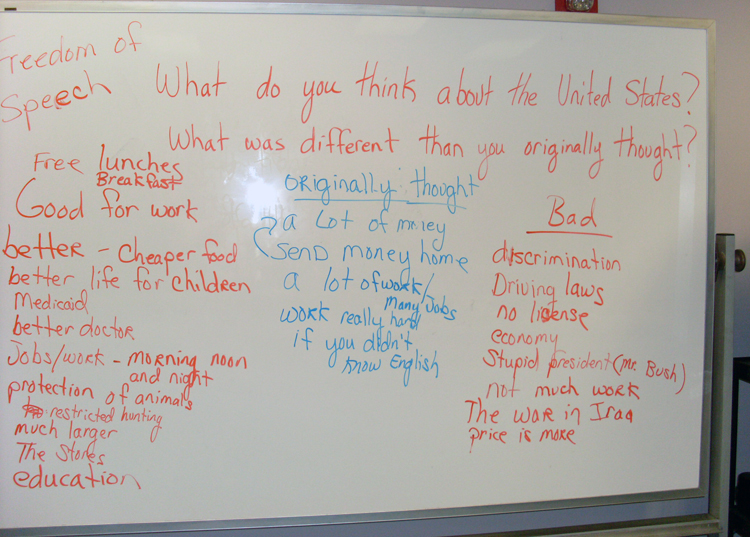 Freedom of
Speech
What do you think about the United States?
What was different than you originally thought?
Free lunches
Breakfast
Good for work
better - cheaper food
better life for children
Medicaid
better doctor
Jobs/work - morning noon
and night
protection of animals
restricted hunting
much larger
The Stores
education
originally thought
a lot of money
send money home
a lot of work/
many Jobs
work really hard
if you didn't
know English
Bad
discrimination
Driving laws
no license
economy
Stupid president (mr. Bush)
not much work
The war in Iraq
price is more